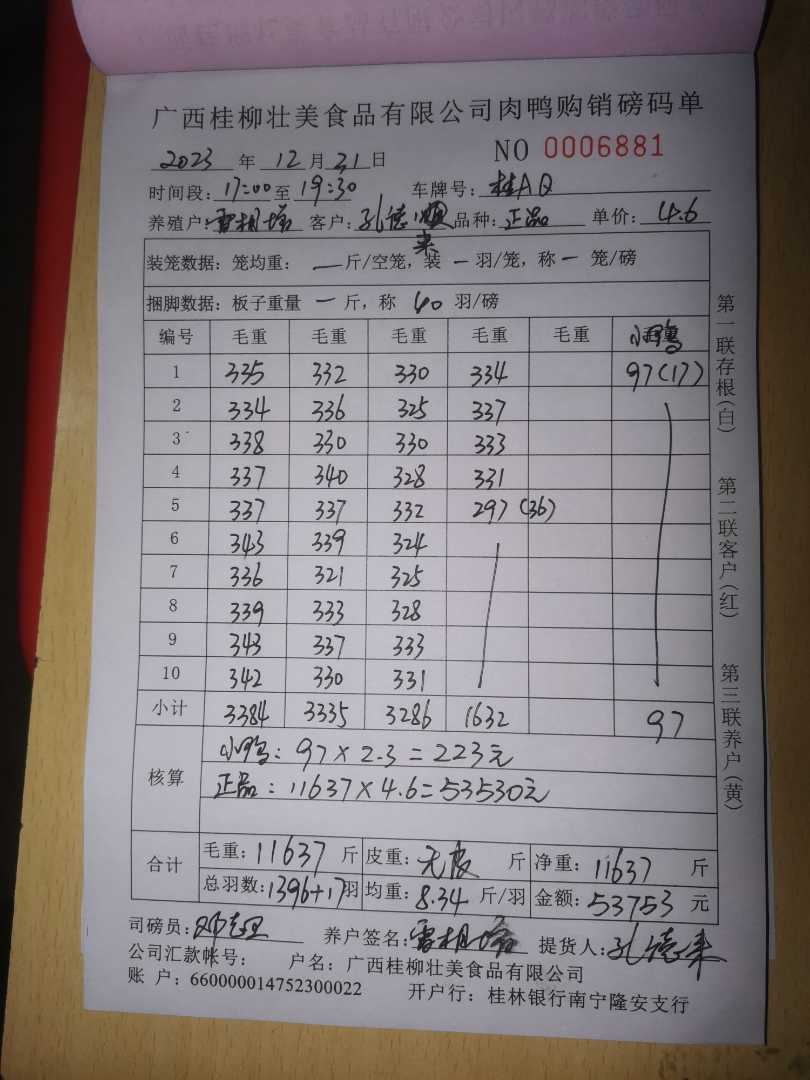 广西桂柳壮美食品有限公司肉鸭购销磅码单
NO 0006881
2023 年 12 月 21 日
时间段: 17:00 至 19:30 车牌号: 桂AQ
养殖户: 雷相 客户: 孔德来 品种: 正品 单价: 4.6
装笼数据: 笼均重: — 斤/空笼, 装 — 羽/笼, 称 — 笼/磅
捆脚数据: 板子重量 — 斤, 称 40 羽/磅
编号 毛重 毛重 毛重 毛重 毛重 小鸭
1 335 332 330 334 97(17)
2 334 336 325 337
3 338 330 330 333
4 337 340 328 331
5 337 337 332 297 (36)
6 343 339 324
7 336 321 325
8 339 333 328
9 343 337 333
10 342 330 331
小计 3384 3335 3286 1632 97
核算
小鸭: 97×2.3=223元
正品: 11637×4.6=53530元
合计
毛重: 11637 斤 皮重: 无皮 斤 净重: 11637 斤
总羽数: 1396+17 羽 均重: 8.34 斤/羽 金额: 53753 元
司磅员: 养户签名: 雷相 提货人: 孔德来
公司汇款帐号: 户名: 广西桂柳壮美食品有限公司
账 户: 660000014752300022 开户行: 桂林银行南宁隆安支行
第一联存根(白)
第二联客户(红)
第三联养户(黄)